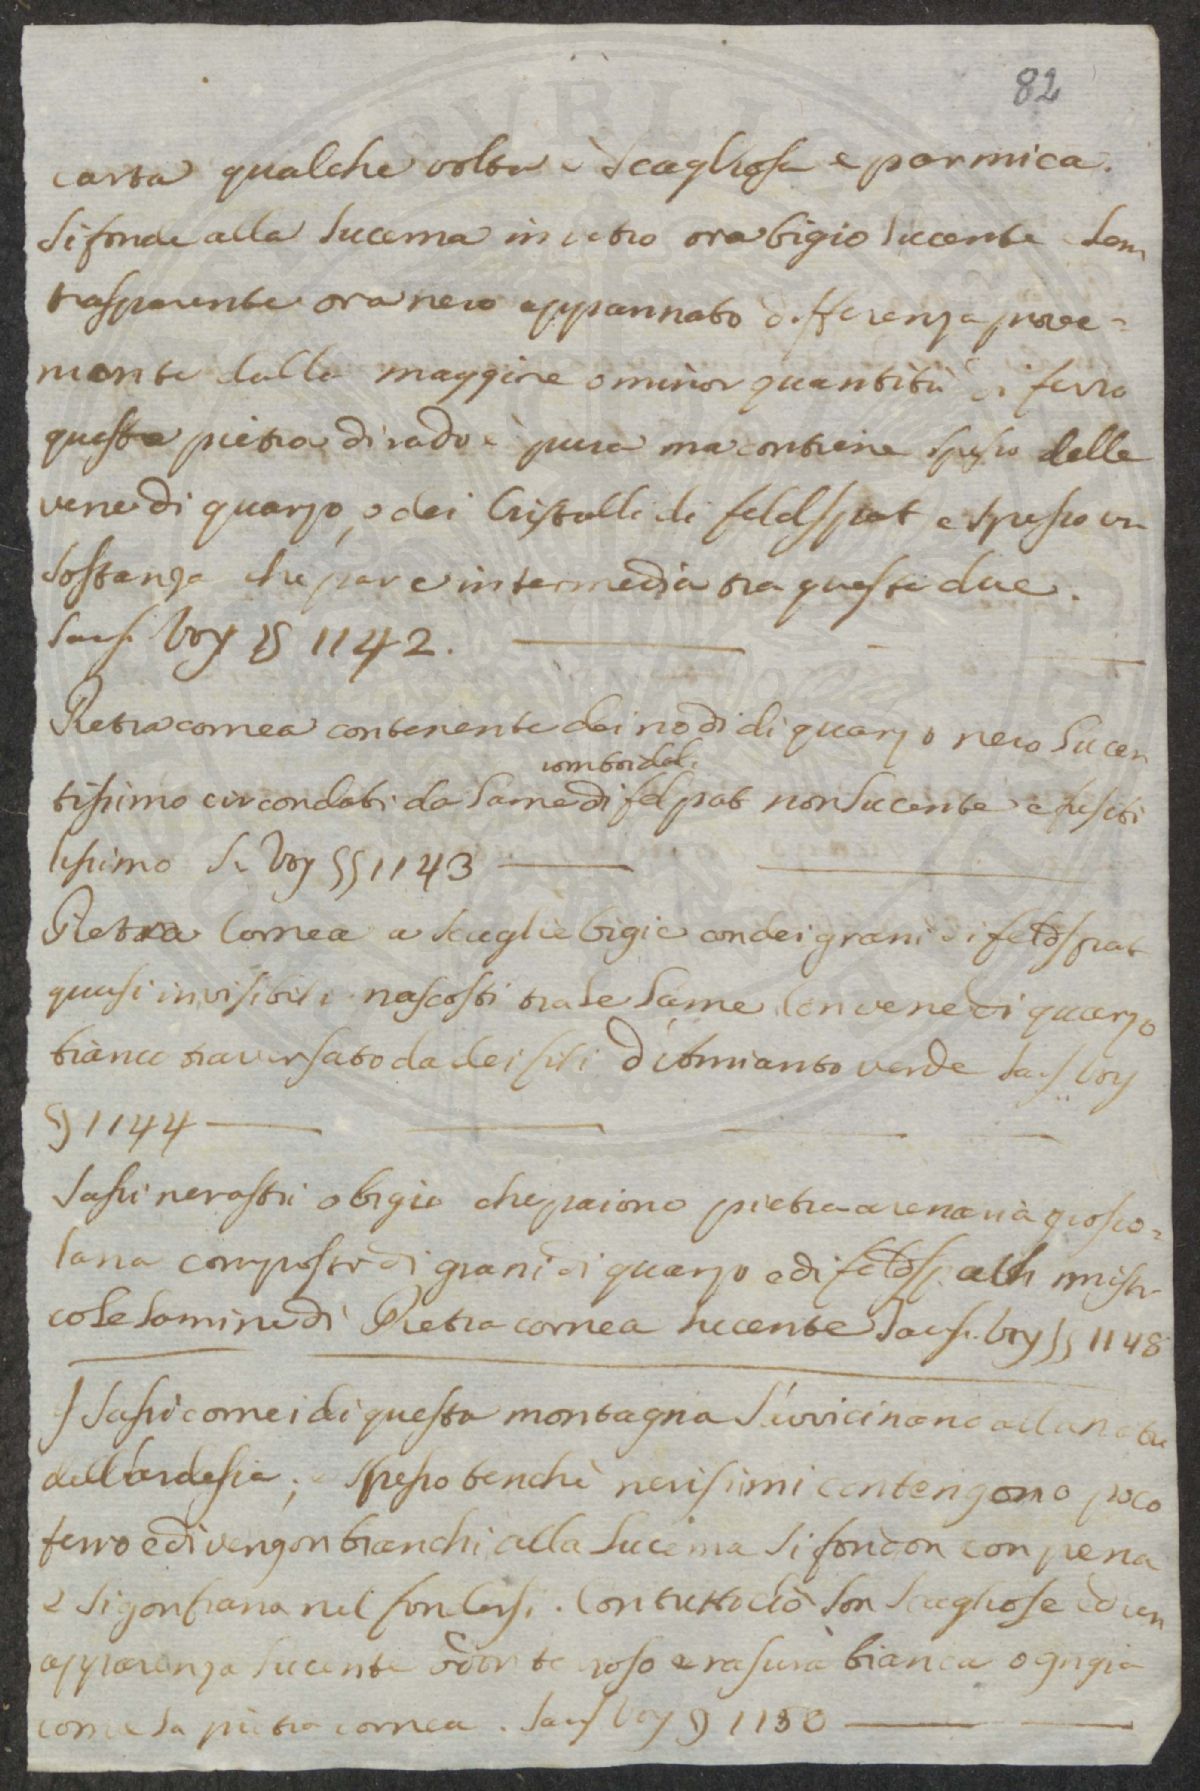 82
carta qualche volta è scagliosa e par mica.
Si fonde alla lucerna in vetro ora bigio lucente e sem
trasparente ora nero appannato differenza prove=
niente dalla maggiore o minor quantità di ferro
questa pietra di rado è pura ma contiene spesso delle
vene di quarzo, o dei Cristalli di feldspat e spesso un
sostanza che pare intermedia tra queste due.
Sauss. Voy § 1142.
Pietra cornea contenente dei nodi di quarzo nero lucen
romboidali
tissimo circondati da lame di felspat non lucente e fusibi
lissimo S. Voy §§ 1143
Pietra Cornea a scaglie bigie con dei grani di feldspat
quasi invisibili nascosti tra le lame con vene di quarzo
bianco traversato da dei fili d'Amianto verde Saus Voy
§ 1144
Sassi nerastri o bigi che paiono pietra arenaria grosso=
lana composti di grani di quarzo e di feldspath misti
cole lamine di Pietra cornea lucente Sauss. Voy §§ 1148
I Sassi cornei di questa montagna s'avvicinano alla natu
dell'ardesia; e spesso benchè nerissimi contengono poco
ferro e divengon bianchi alla lucerna si fondon con pena
e si gonfiano nel fondersi. Con tuttociò son scagliose ed un
apparenza lucente odor terroso e rasura bianca o grigia
come la pietra cornea. Saus Voy § 1150